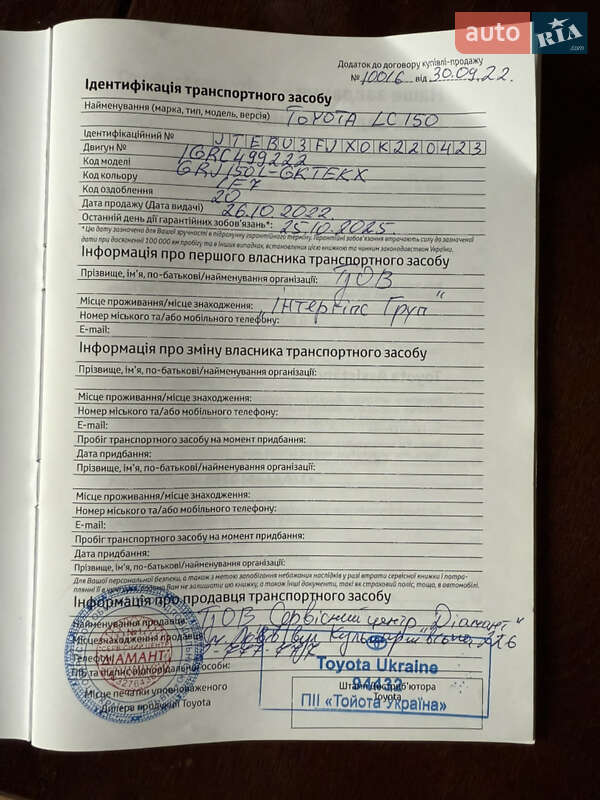 auto RIA .com
Додаток до договору купівлі-продажу
№ 10016 від 30.09.22.
Ідентифікація транспортного засобу
Найменування (марка, тип, модель, версія) TOYOTA LC150
Ідентифікаційний № JTEBU3FJX0K220423
Двигун № 1GRC499222
Код моделі GRJ150L-GKTEKX
Код кольору 1F7
Код оздоблення 20
Дата продажу (Дата видачі) 26.10.2022.
Останній день дії гарантійних зобов'язань*: 25.10.2025.
*Цю дату зазначено для Вашої зручності в підрахунку гарантійного терміну. Гарантійні зобов'язання втрачають силу до зазначеної
дати при досягненні 100 000 км пробігу та в інших випадках, встановлених цією книжкою та чинним законодавством України.
Інформація про першого власника транспортного засобу
Прізвище, ім'я, по-батькові/найменування організації: ТОВ
Місце проживання/місце знаходження: "Інтерківс Груп"
Номер міського та/або мобільного телефону:
E-mail:
Інформація про зміну власника транспортного засобу
Прізвище, ім'я, по-батькові/найменування організації:
Місце проживання/місце знаходження:
Номер міського та/або мобільного телефону:
E-mail:
Пробіг транспортного засобу на момент придбання:
Дата придбання:
Прізвище, ім'я, по-батькові/найменування організації:
Місце проживання/місце знаходження:
Номер міського та/або мобільного телефону:
E-mail:
Пробіг транспортного засобу на момент придбання:
Дата придбання:
Прізвище, ім'я, по-батькові/найменування організації:
Для Вашої персональної безпеки, а також з метою запобігання небажаних наслідків у разі втрати сервісної книжки і потра-
плянні її в чужі руки, радимо Вам не залишати цю книжку, а також інші документи, такі як страховий поліс, тощо, в автомобілі.
Інформація про продавця транспортного засобу
Найменування продавця ТОВ Сервісний центр "Діамант"
Місцезнаходження продавця
Телефон
ПІБ та підпис відповідальної особи:
ДІАМАНТ
Місце печатки уповноваженого
Дилера продукції Toyota
Toyota Ukraine
94432
Штамп дистриб'ютора
Toyota
ПІІ «Тойота Україна»